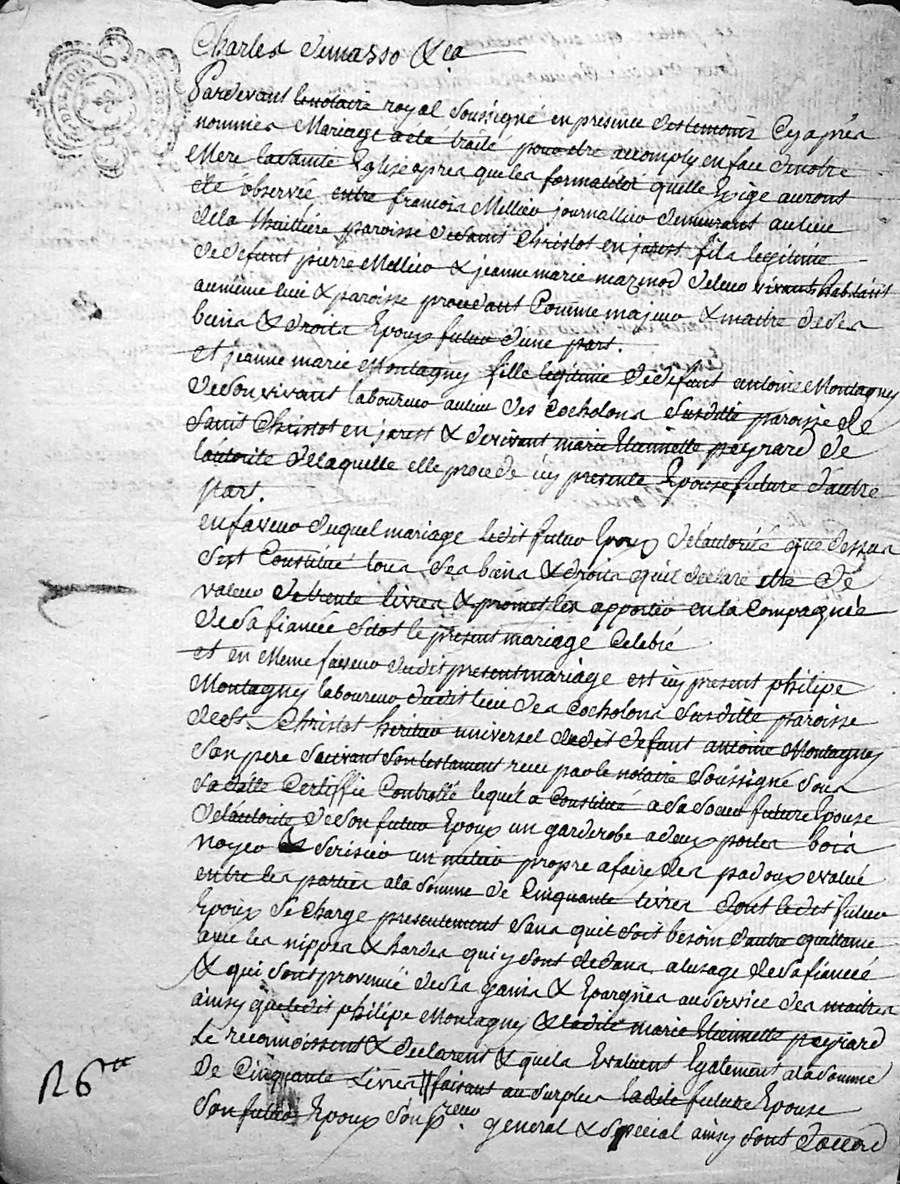 Charles Demasso &ca
Pardevant lenotaire royal soussigné en presence destemoins Cy après
nommés Mariage a eté traité pour etre accomply en face denotre
Mere la sainte Eglise apres que les formalités quelle Exige auront
eté observée entre francois Mellier journallier demeurant au lieu
dela paroisse de saint Christot en jarest fils legitime
de defunt pierre Mellier & jeanne marie mazenod deleur vivant habitants
au même lieu & paroisse procedant Comme majeur & maitre deses
biens & droits Epoux futur d'une part.
et jeanne marie Montagny fille legitime de defunt antoine Montagny
de son vivant laboureur au lieu des Cocholons susditte paroisse de
saint Christot en jarest & de vivant marie Etiennette peyrard de
lautorité delaquelle elle procede icy presente Epouse future d'autre
part.
en faveur duquel mariage ledit futur Epoux de lautorité que dessus
s'est Constitué tous ses biens & droits quil declare etre de
valeur de trente livres & promet les apporter en la Compagnée
de sa fiancée sitot le présent mariage Celebré
et en Meme faveur dudit present mariage est icy present philipe
Montagny laboureur dudit lieu des Cocholons susditte paroisse
de St. Christot heritier universel dudit defunt antoine Montagny
son pere suivant son testament reçu par le notaire soussigné sous
sa datte Certiffié Controllé lequel a Constitué a sa soeur future Epouse
de lautorité de son futur Epoux un garderobe a deux portes bois
noyer & serisier un metier propre a faire des padoux evalué
entre les parties a la somme de Cinquante livres dont ledit futur
Epoux se Charge presentement sans quil soit besoin d'autre quittance
avec les nippes & hardes qui y sont dedans a lusage de sa fiancée
& qui sont provenüe de ses gains & Epargnes au service des maitres
ainsy que ledit philipe Montagny & ladite marie Etiennette peyrard
Le reconnoissent & declarent & quils Evaluent Egalement a la somme
de Cinquante Livres // faisant au surplus ladite future Epouse
son futur Epoux son preur. general & special ainsy sont d'accord
126